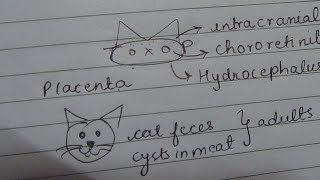 intracranial
chororetinit
Hydrocephalus
Placenta
cat feces } adults
cysts in meat